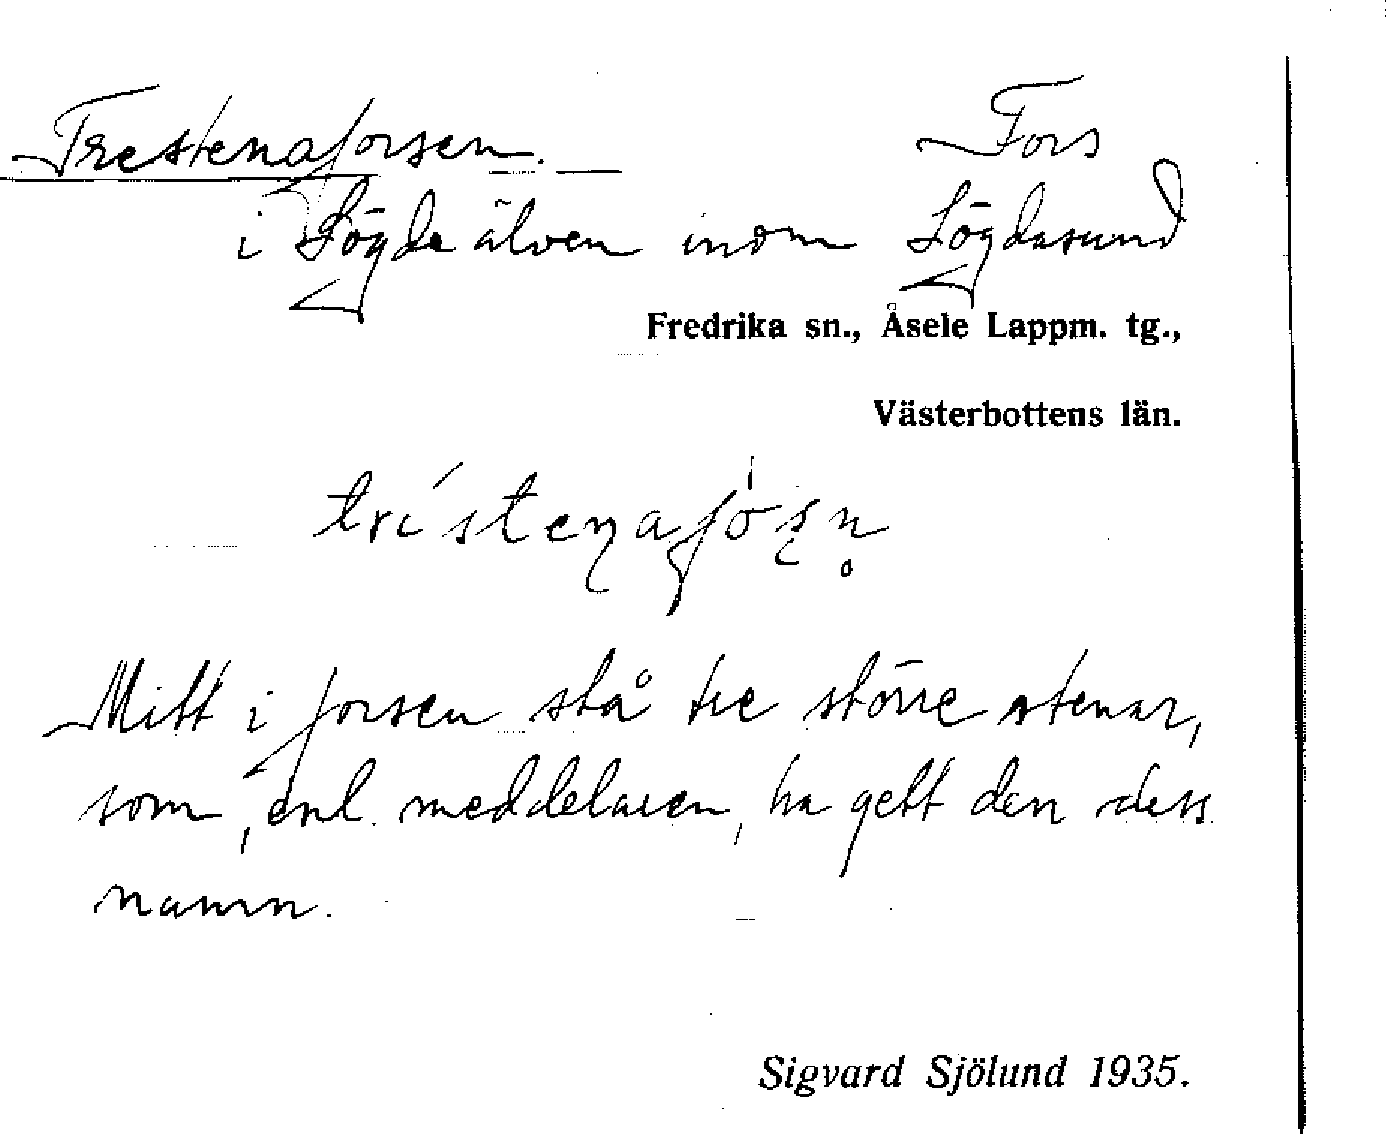 Trestenaforsen. Fors
i Lögdeälven inom Lögdasund
Fredrika sn., Åsele Lappm. tg.,
Västerbottens län.
Mitt i forsen stå tre större stenar,
som, enl. meddelaren, ha gett den dess
namn.
Sigvard Sjölund 1935.